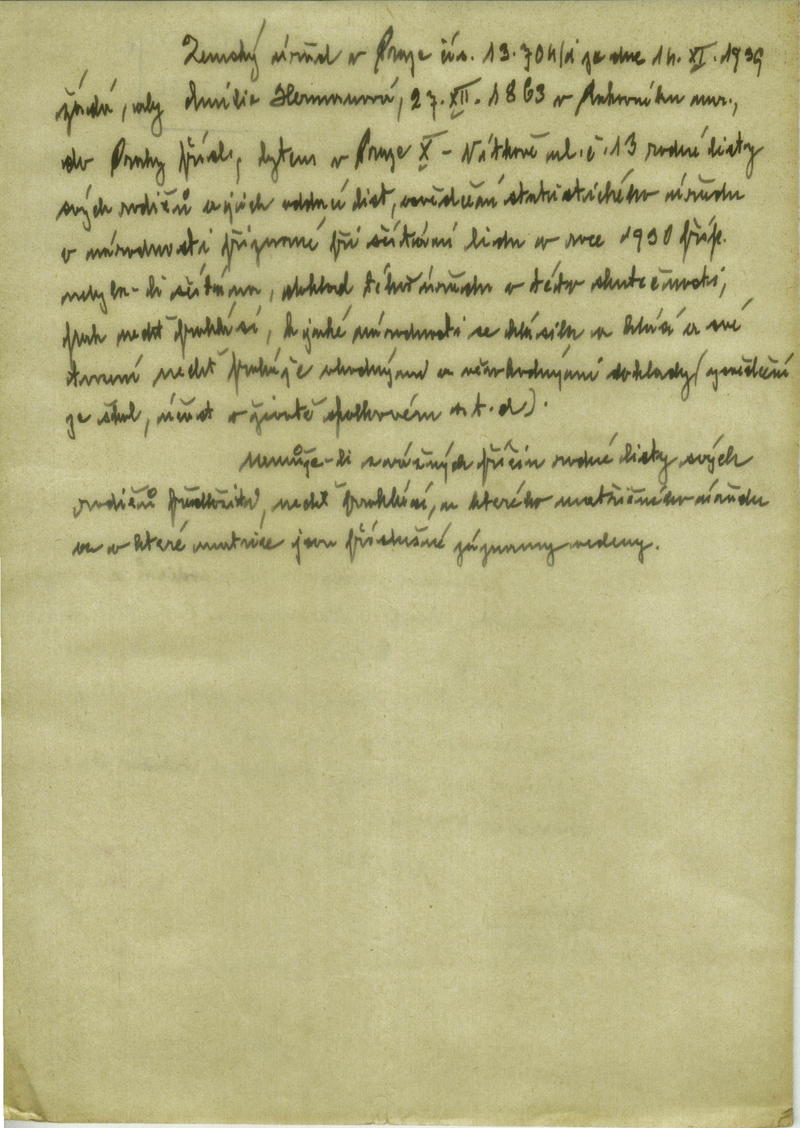 Zemský úřad v Praze čís. 13.704/i ze dne 14. XI. 1939
žádá, aby Amálie Hermanová, 27. XII. 1863 v Rakovníku nar.,
do Prahy přísl., bytem v Praze X - Vítkově ul. č. 13 rodné listy
svých rodičů a jich oddací list, osvědčení statistického úřadu
o národnosti přiznané při sčítání lidu v roce 1930 příp.
nebyla-li sčítána, doklad téhož úřadu o této skutečnosti,
pak nechť prohlásí, k jaké národnosti se hlásila a hlásí a své
tvrzení nechť prokáže vhodnými a věrohodnými doklady (vysvědčení
ze škol, účast v životě spolkovém a t. d).
Nemůže-li z vážných příčin rodné listy svých
rodičů předložiti, nechť prohlásí, u kterého matričního úřadu
a v které matrice jsou příslušné záznamy vedeny.